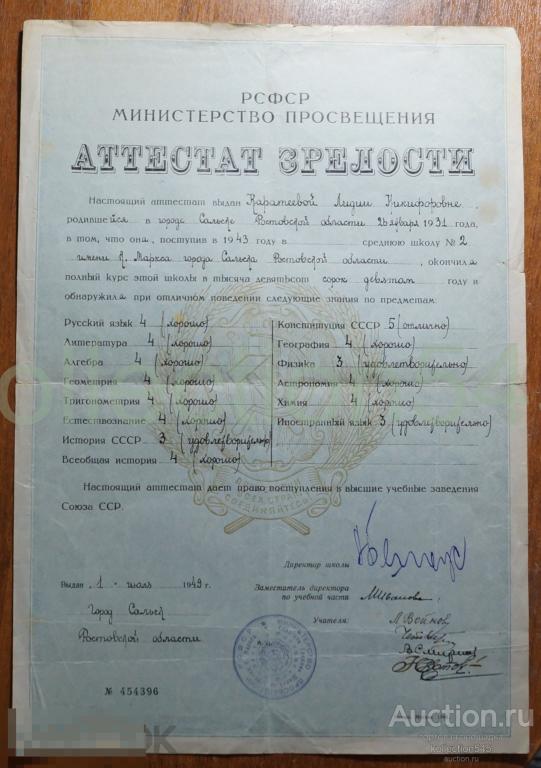 РСФСР
МИНИСТЕРСТВО ПРОСВЕЩЕНИЯ
АТТЕСТАТ ЗРЕЛОСТИ
Настоящий аттестат выдан Каратеевой Лидии Никифоровне,
родившейся в городе Сальске Ростовской области 26 января 1931 года,
в том, что она, поступив в 1943 году в среднюю школу № 2
имени К. Маркса города Сальска Ростовской области, окончила
полный курс этой школы в тысяча девятьсот сорок девятом году и
обнаружила при отличном поведении следующие знания по предметам:
Русский язык 4 (хорошо)
Литература 4 (хорошо)
Алгебра 4 (хорошо)
Геометрия 4 (хорошо)
Тригонометрия 4 (хорошо)
Естествознание 4 (хорошо)
История СССР 3 (удовлетворительно)
Всеобщая история 4 (хорошо)
Конституция СССР 5 (отлично)
География 4 (хорошо)
Физика 3 (удовлетворительно)
Астрономия 4 (хорошо)
Химия 4 (хорошо)
Иностранный язык 3 (удовлетворительно)
Настоящий аттестат дает право поступления в высшие учебные заведения
Союза ССР.
СОЕДИНЯЙТЕСЬ
Директор школы
Выдан 1 июль 1949 г.
Заместитель директора
по учебной части
Город Сальск
Ростовской области
Учителя:
№ 454396
Auction.ru
торговая площадка
kollection545
auction.ru